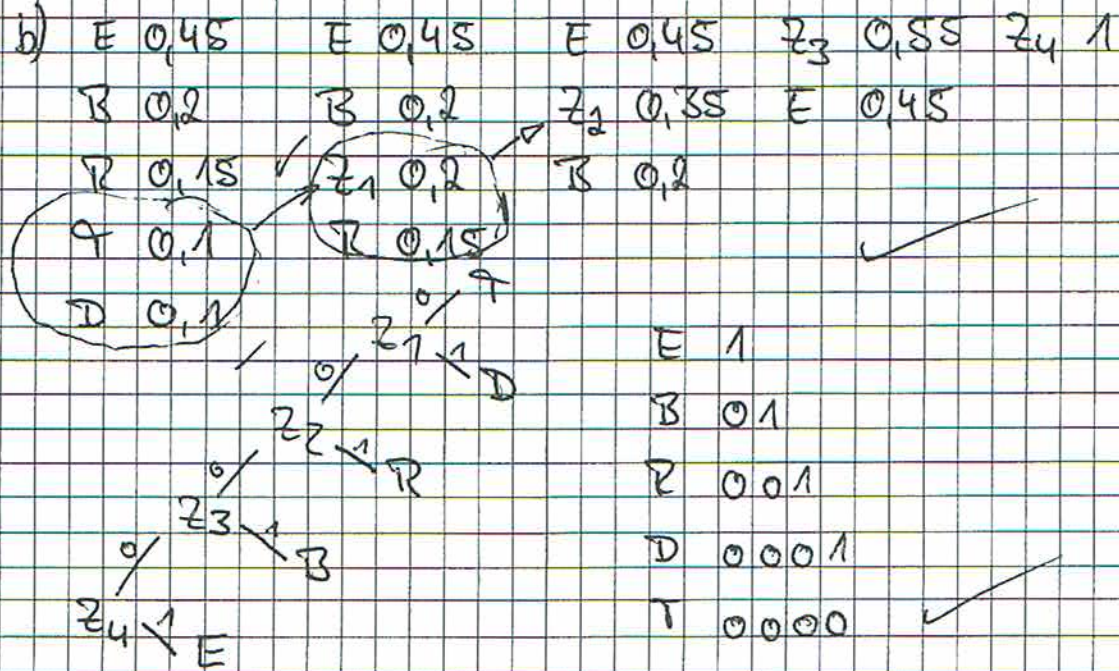 b) E 0,45 E 0,45 E 0,45 Z3 0,55 Z4 1
B 0,2 B 0,2 Z2 0,35 E 0,45
R 0,15 Z1 0,2 B 0,2
T 0,1 R 0,15
D 0,1
0 T
Z1 1 D
0
Z2 1 R
0
Z3 1 B
0
Z4 1 E
E 1
B 01
R 001
D 0001
T 0000